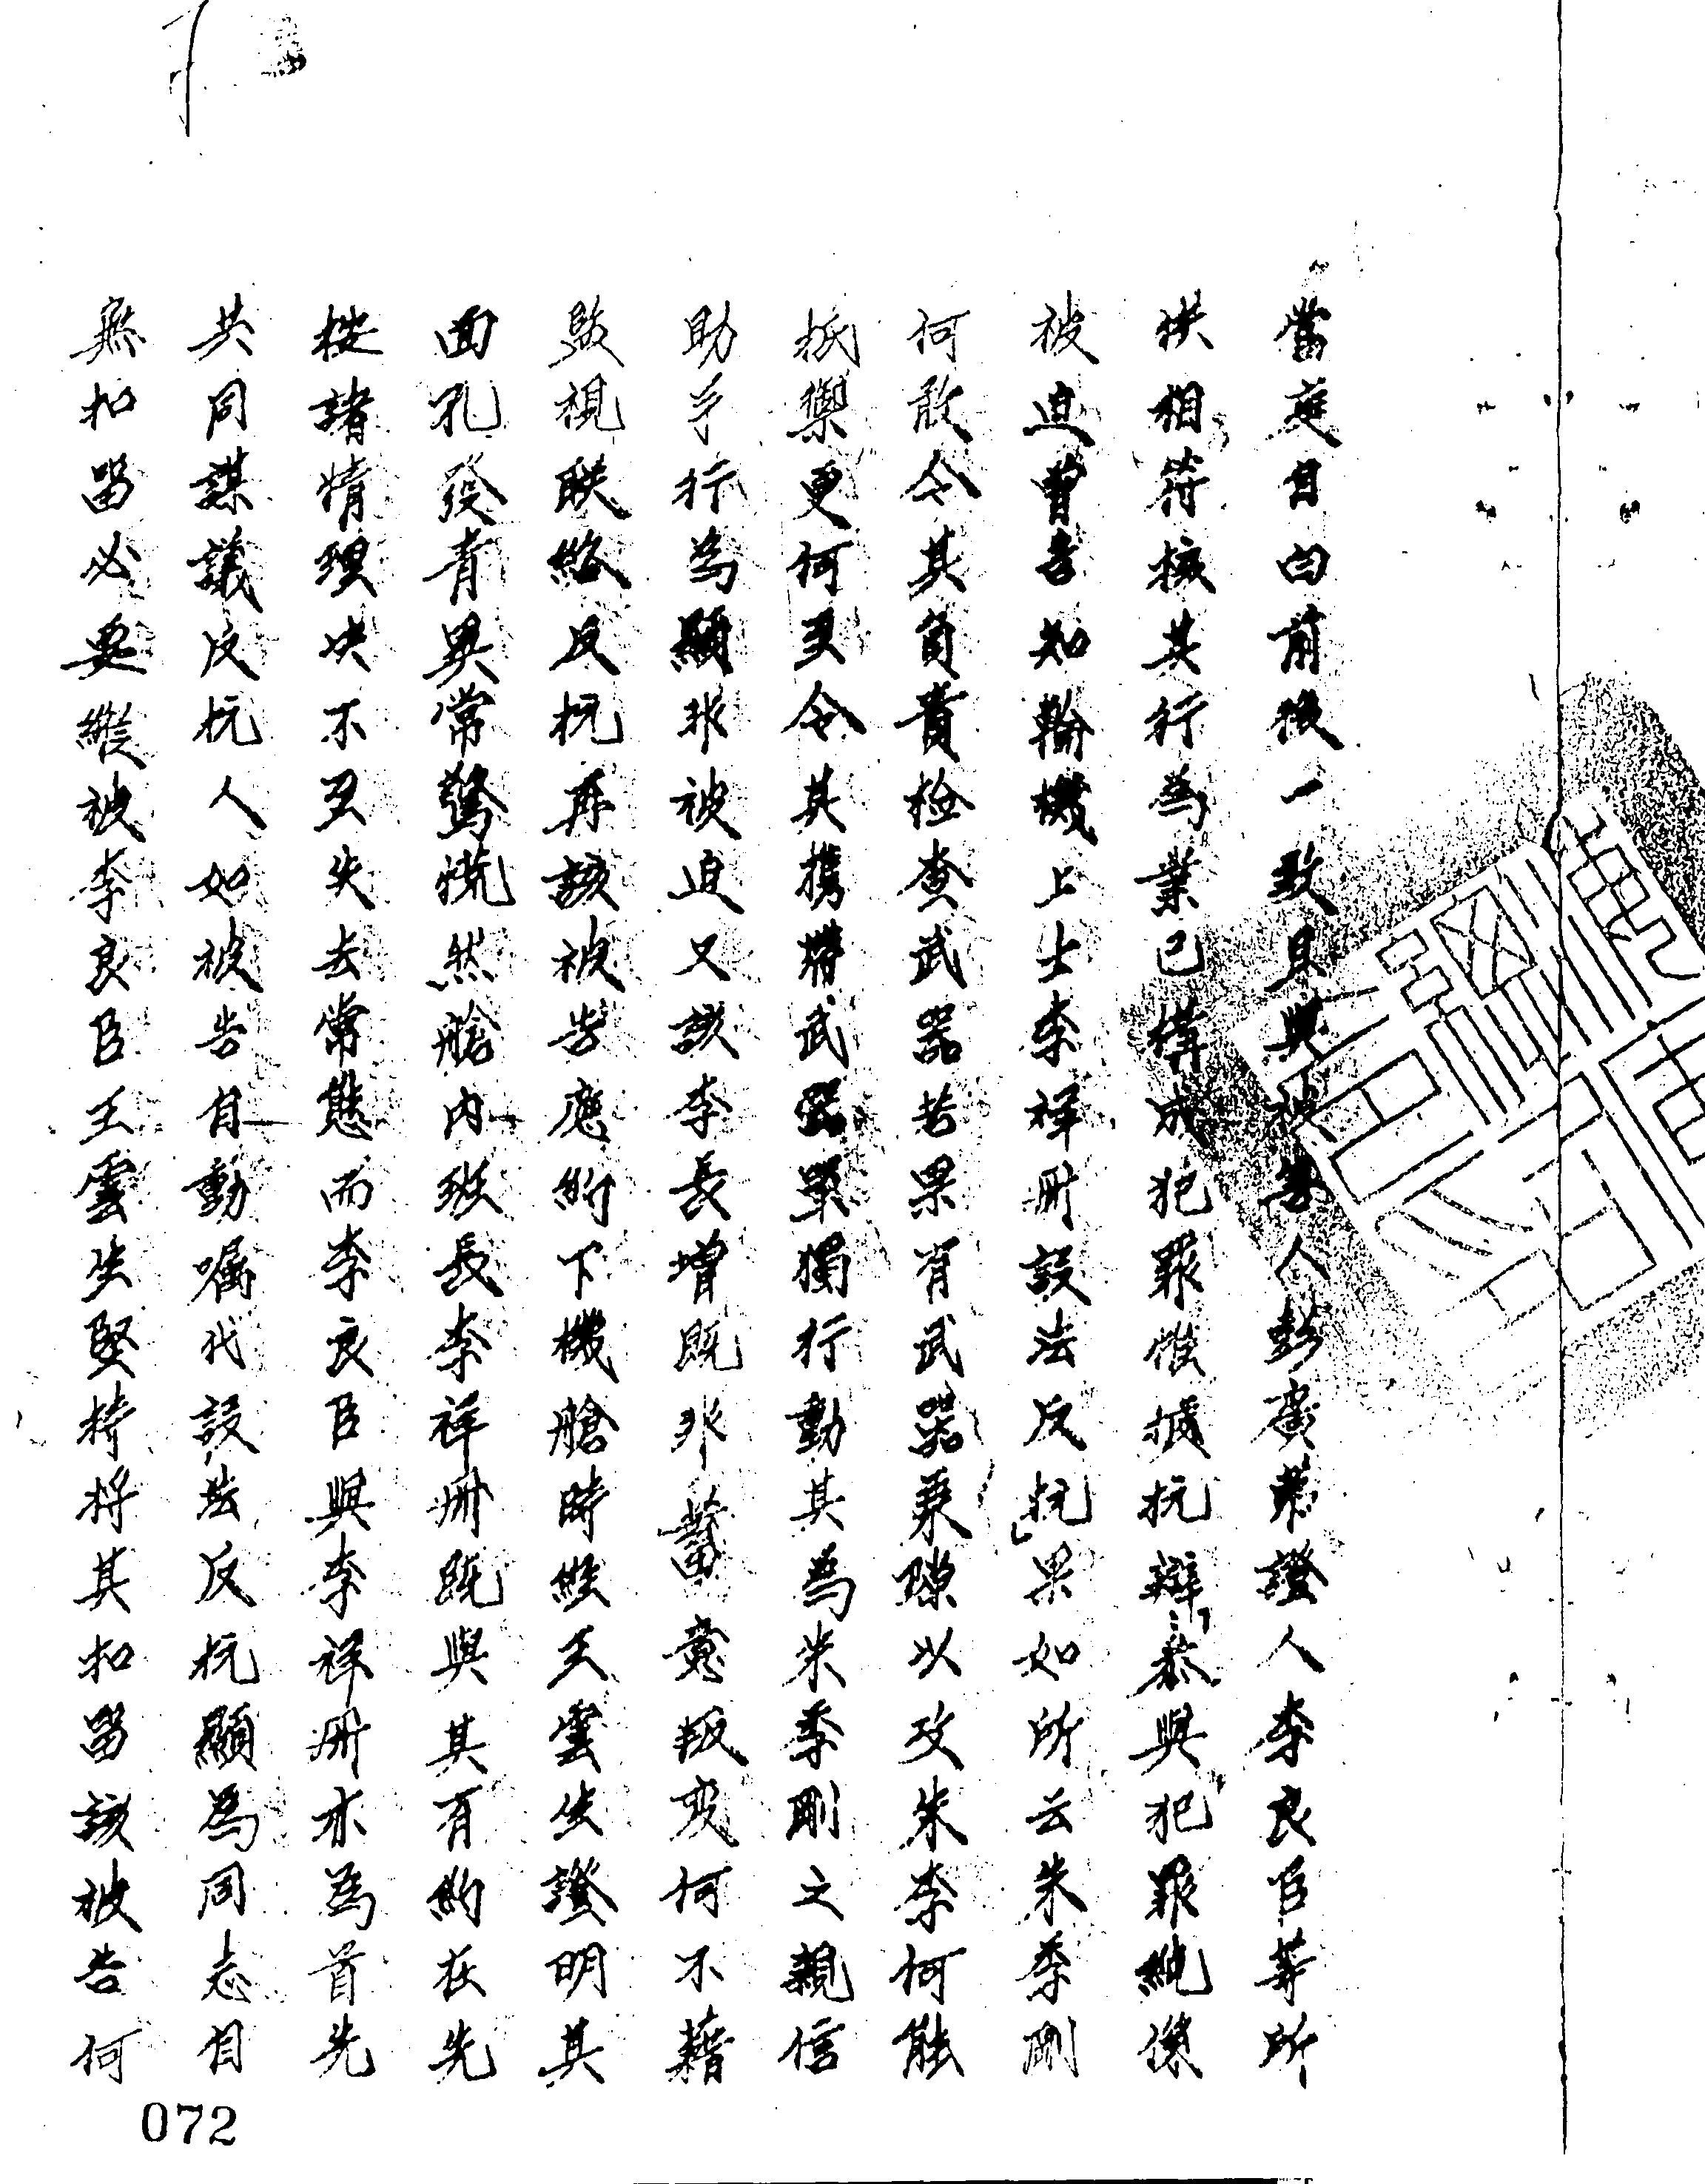 當庭自白前後一致且與被告人彭廣蒂證人李良臣等所
供相符核其行為業已構成犯罪惟據抗辯恭與犯罪純係
被迫曾告知輪機上士李祥冊設法反抗果如所云朱季剛
何敢令其負責检查武器若果有武器乘隙以攻朱季何能
抵禦更何至令其携帶武器單獨行動其為朱季剛之親信
助手行為顯非被迫又該李長增既非蓄意叛变何不藉
監視联絡反抗再該被告應約下機艙時經王雲生證明其
面孔發青異常驚慌然艙內班長李祥冊既與其有約在先
按諸情理决不至失去常態而李良臣與李祥冊亦為首先
共同謀議反抗人如被告自動嘱代設法反抗顯為同志自
無扣留必要縱被李良臣王雲生堅持将其扣留該被告何
072